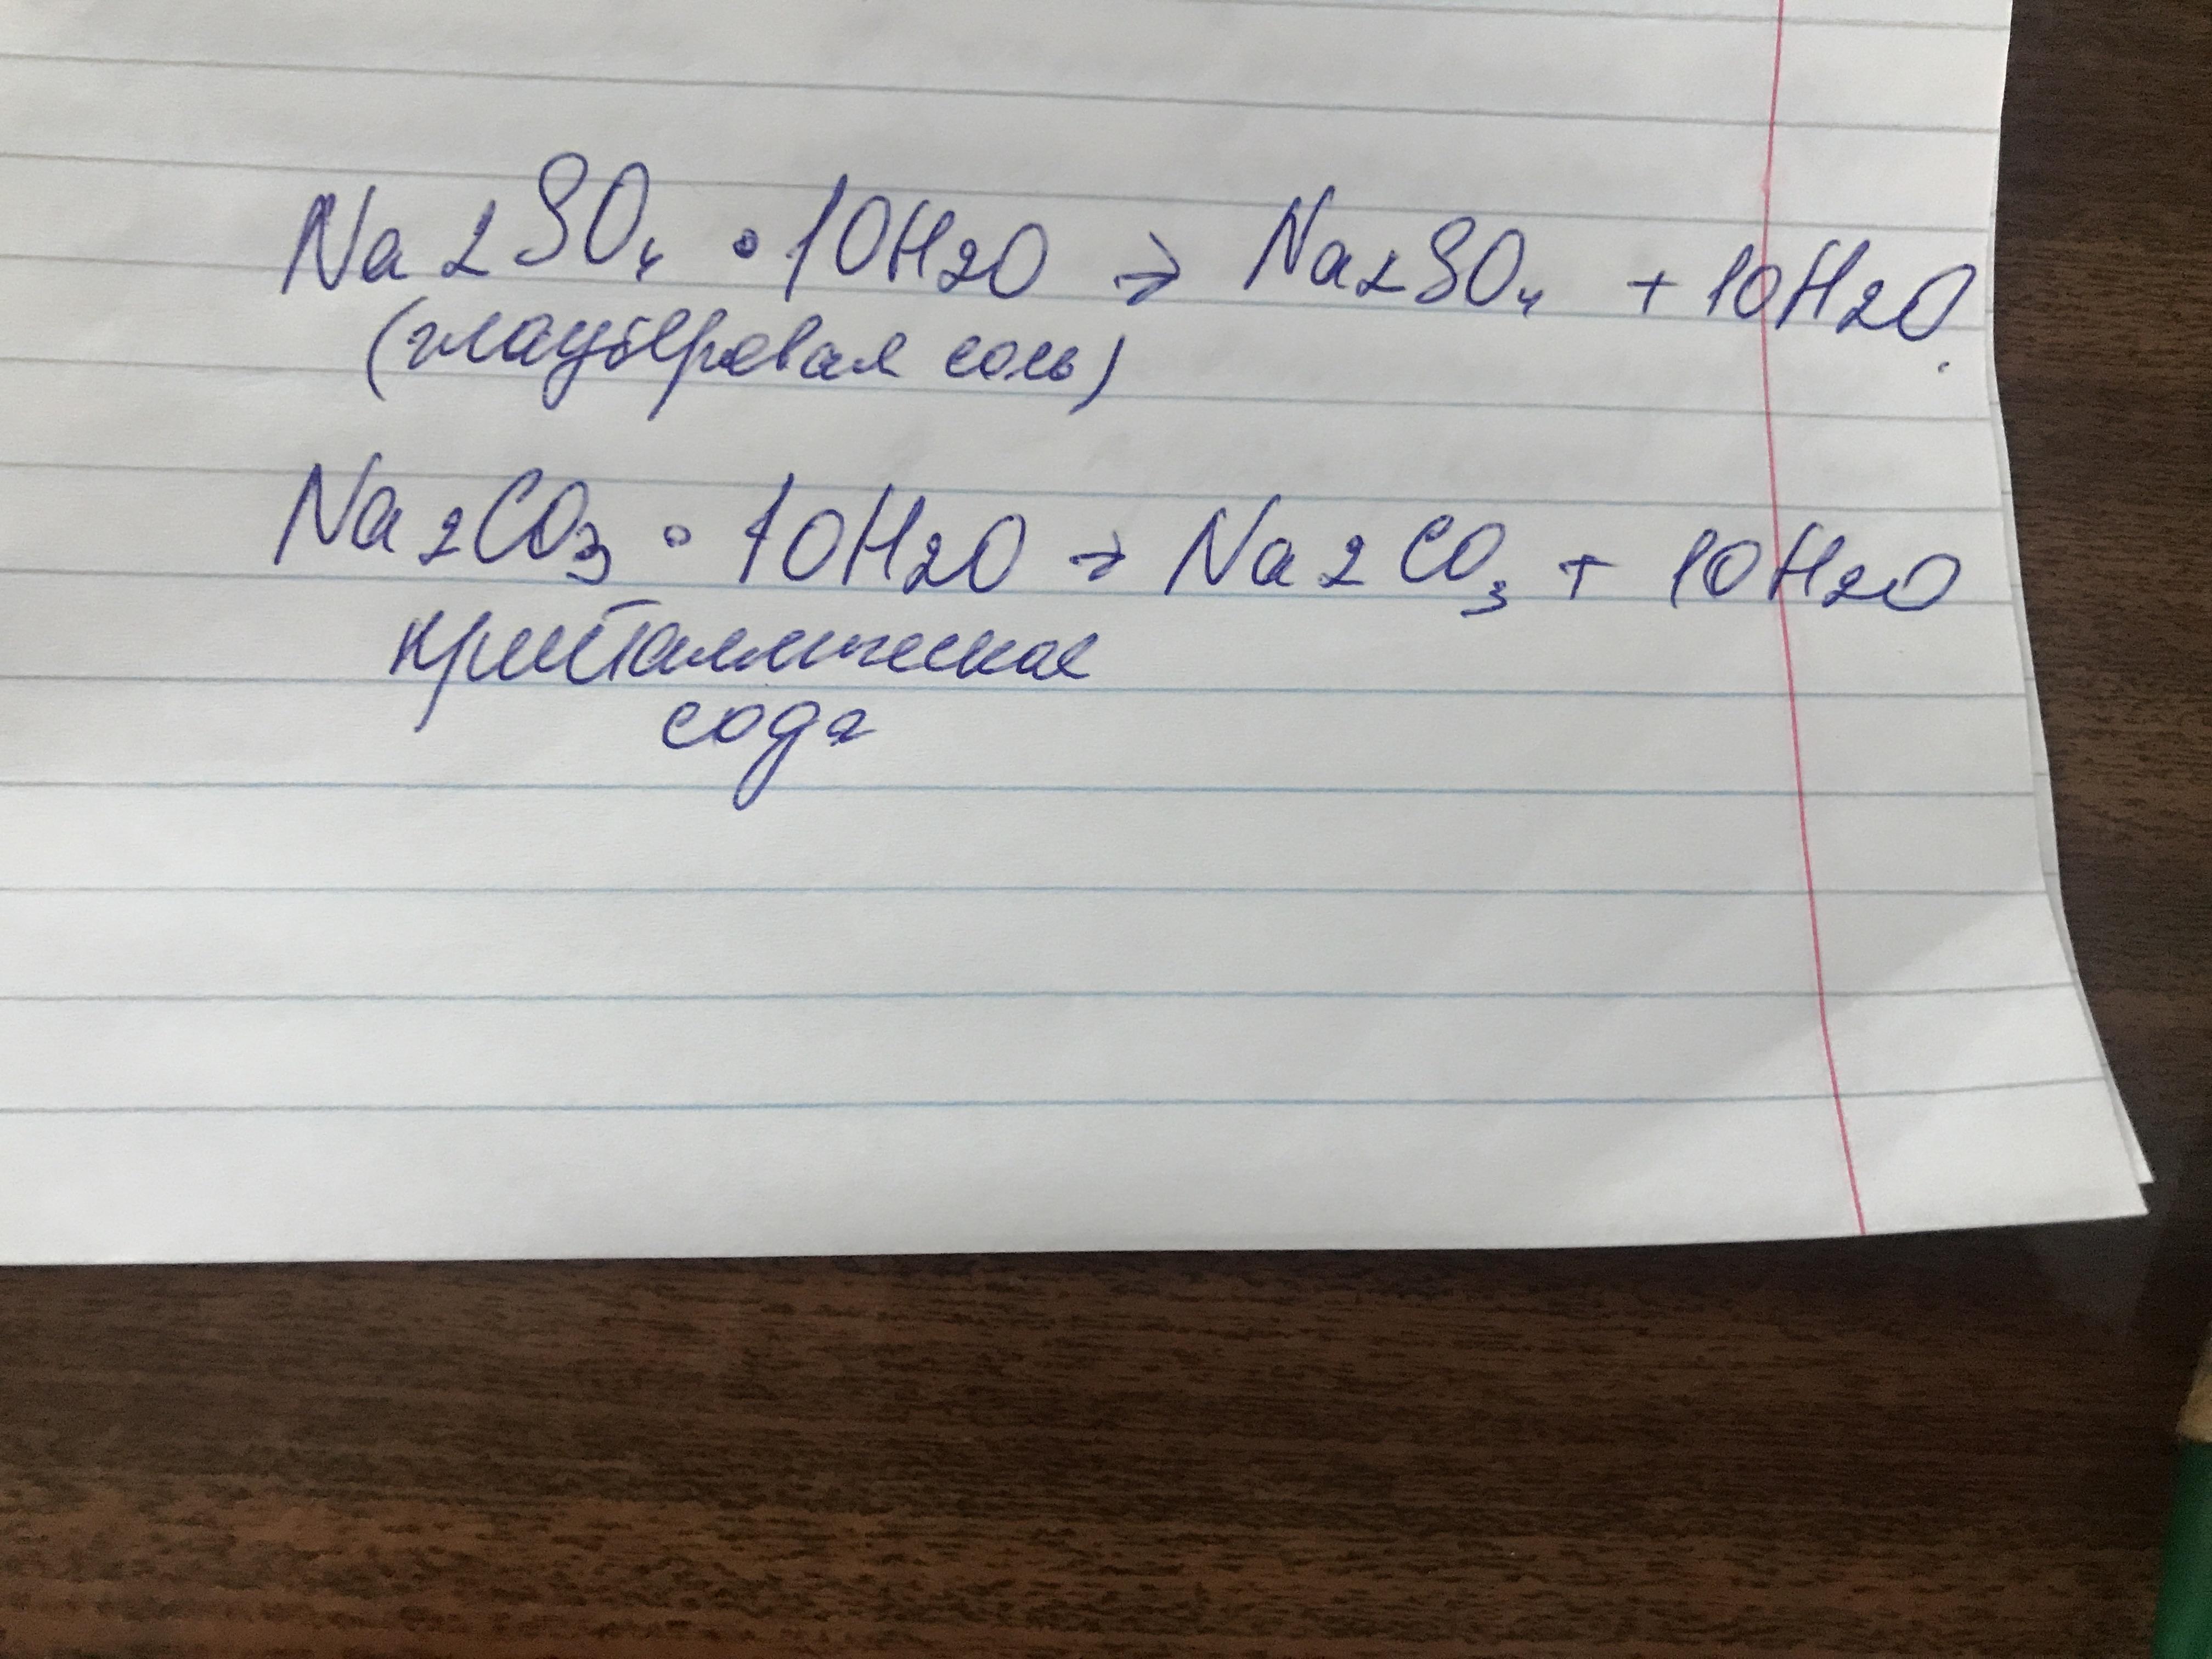 Na2SO4 • 10H2O → Na2SO4 + 10H2O.
(глауберовая соль)
Na2CO3 • 10H2O → Na2CO3 + 10H2O
кристаллическая
сода